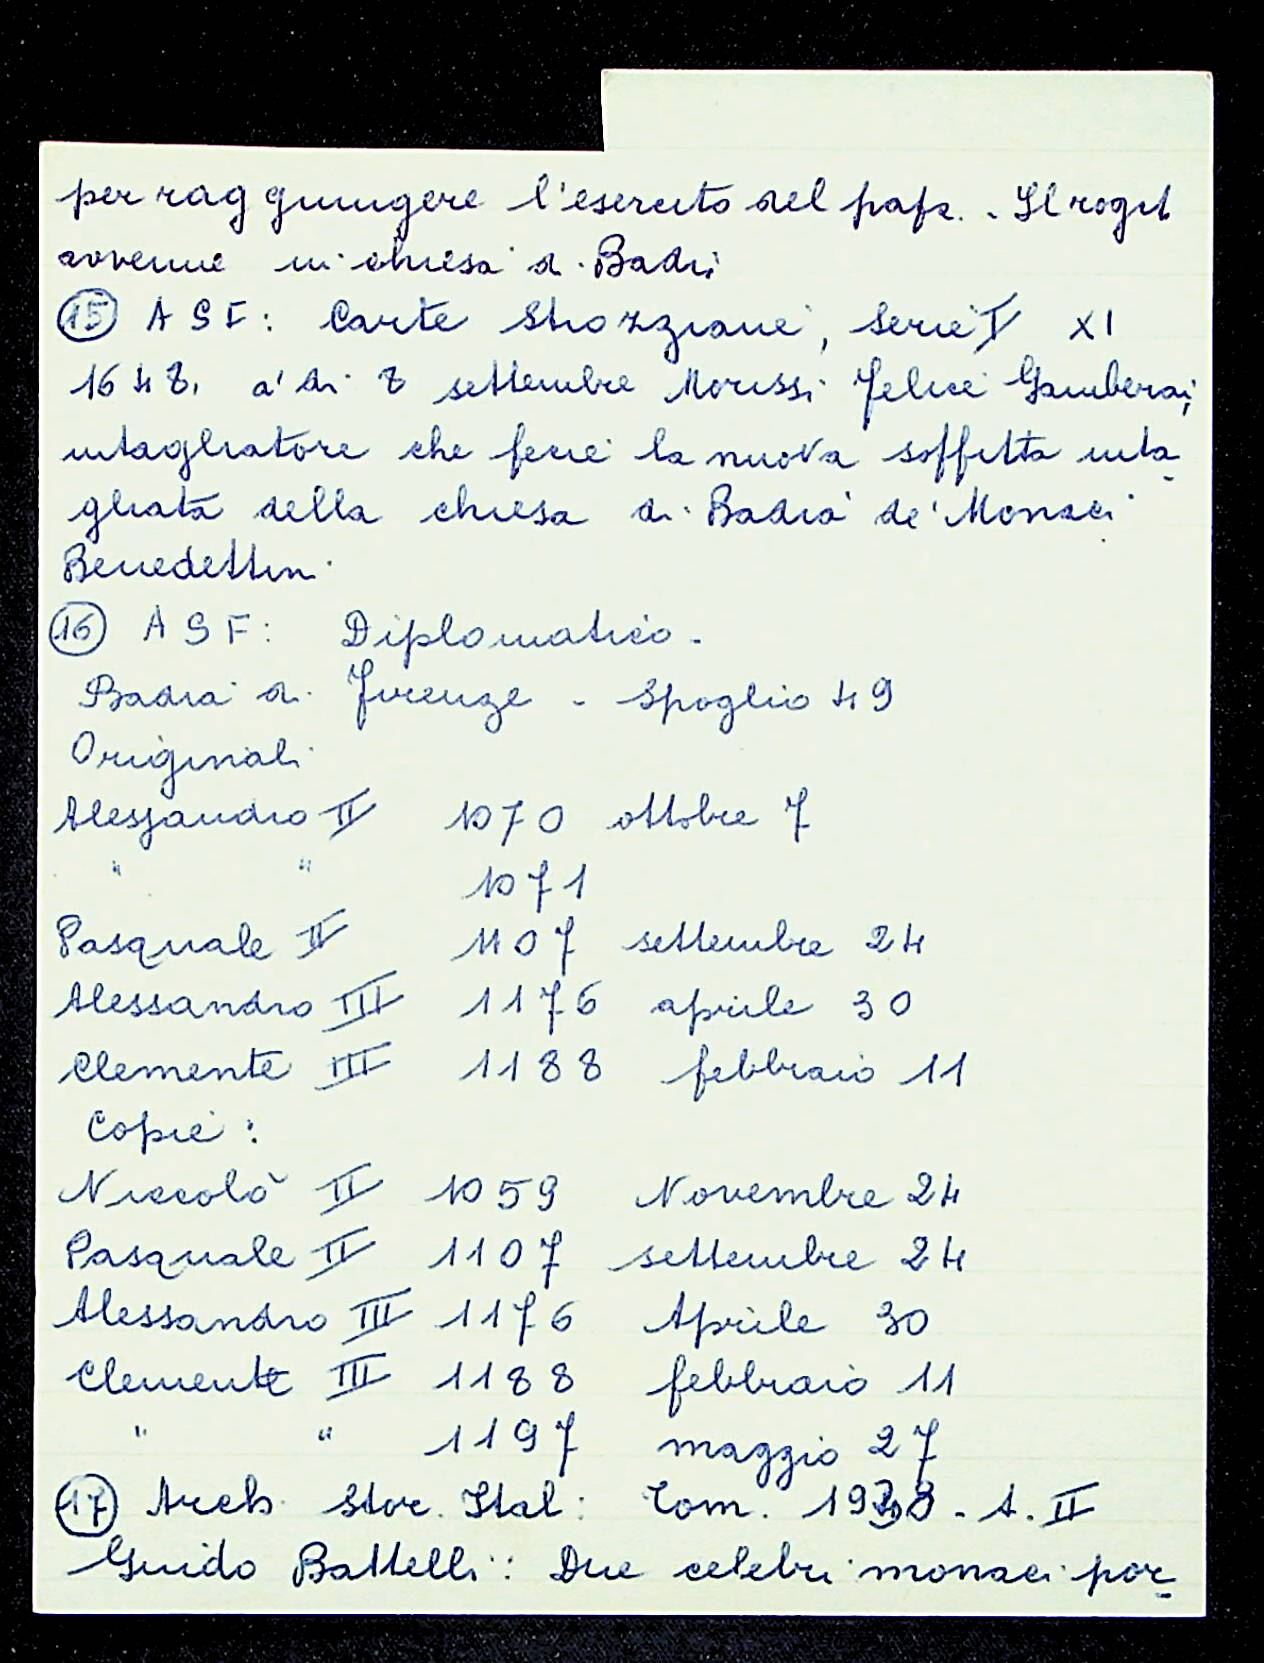 per raggiungere l'esercito del papa. - Il rogit
avvenne in chiesa di Badi
15 ASF: Carte Strozziane, Serie V XI
1648. a' di 8 settembre Morissi Felice Gamberai,
intagliatore che fece la nuova soffitta inta
gliata della chiesa di Badia de' Monaci
Benedettini
16 ASF: Diplomatico -
Badia di Firenze - Spoglio 49
Originali
Alessandro II 1070 ottobre 7
" " 1071
Pasquale II 1107 settembre 24
Alessandro III 1176 aprile 30
Clemente III 1188 febbraio 11
Copie:
Niccolò II 1059 Novembre 24
Pasquale II 1107 settembre 24
Alessandro III 1176 Aprile 30
Clemente III 1188 febbraio 11
" " 1197 maggio 27
17 Arch. Stor. Ital: Tom. - A. II
Guido Battelli: Due celebri monaci por-